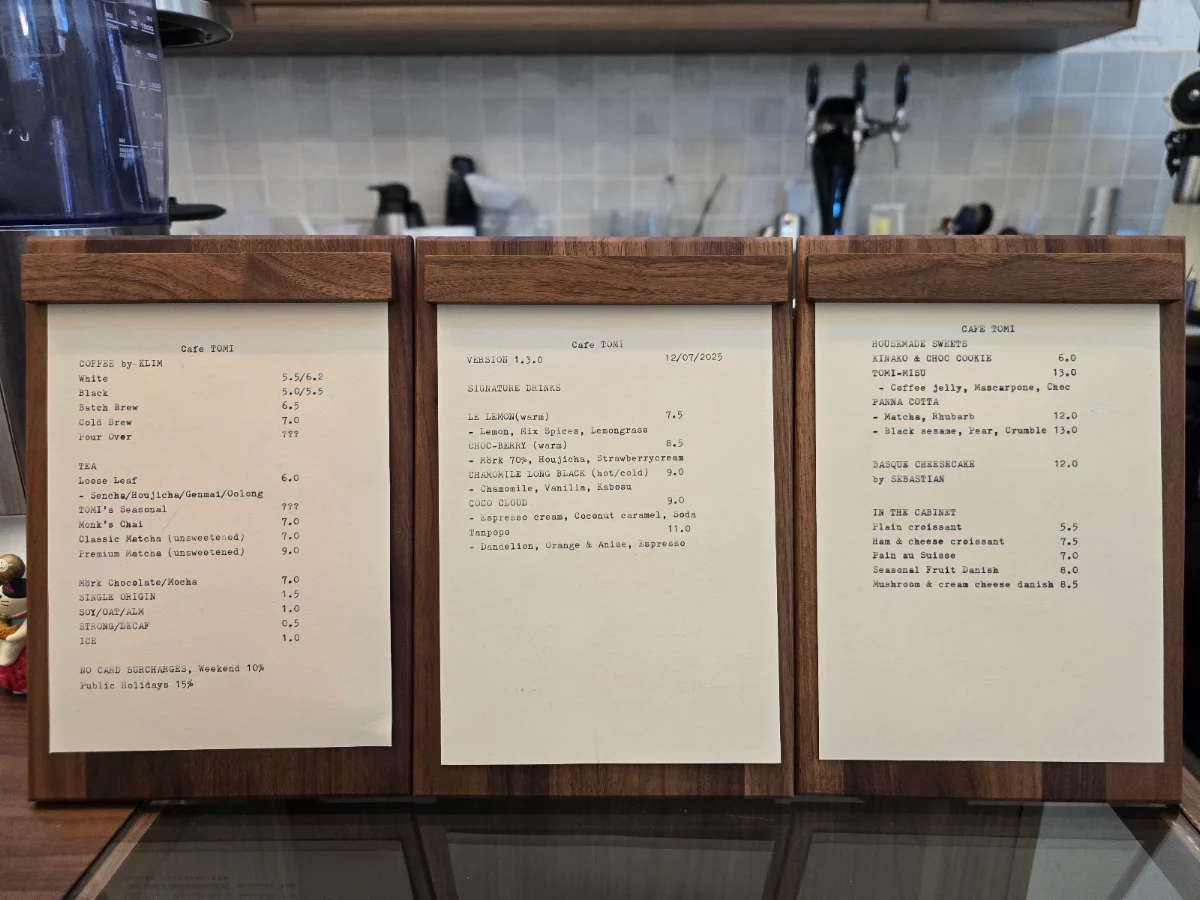 Cafe TOMI
COFFEE by KLIM
White 5.5/6.2
Black 5.0/5.5
Batch Brew 6.5
Cold Brew 7.0
Pour Over ???
TEA
Loose Leaf 6.0
- Sencha/Houjicha/Genmai/Oolong
TOMI's Seasonal ???
Monk's Chai 7.0
Classic Matcha (unsweetened) 7.0
Premium Matcha (unsweetened) 9.0
Mörk Chocolate/Mocha 7.0
SINGLE ORIGIN 1.5
SOY/OAT/ALM 1.0
STRONG/DECAF 0.5
ICE 1.0
NO CARD SURCHARGES, Weekend 10%
Public Holidays 15%
Cafe TOMI
VERSION 1.3.0 12/07/2025
SIGNATURE DRINKS
LE LEMON(warm) 7.5
- Lemon, Mix Spices, Lemongrass
CHOC-BERRY (warm) 8.5
- Mörk 70%, Houjicha, Strawberrycream
CHAMOMILE LONG BLACK (hot/cold) 9.0
- Chamomile, Vanilla, Kabosu
COCO CLOUD 9.0
- Espresso cream, Coconut caramel, Soda
Tanpopo 11.0
- Dandelion, Orange & Anise, Espresso
CAFE TOMI
HOUSEMADE SWEETS
KINAKO & CHOC COOKIE 6.0
TOMI-MISU 13.0
- Coffee jelly, Mascarpone, Choc
PANNA COTTA
- Matcha, Rhubarb 12.0
- Black sesame, Pear, Crumble 13.0
BASQUE CHEESECAKE 12.0
by SEBASTIAN
IN THE CABINET
Plain croissant 5.5
Ham & cheese croissant 7.5
Pain au Suisse 7.0
Seasonal Fruit Danish 8.0
Mushroom & cream cheese danish 8.5